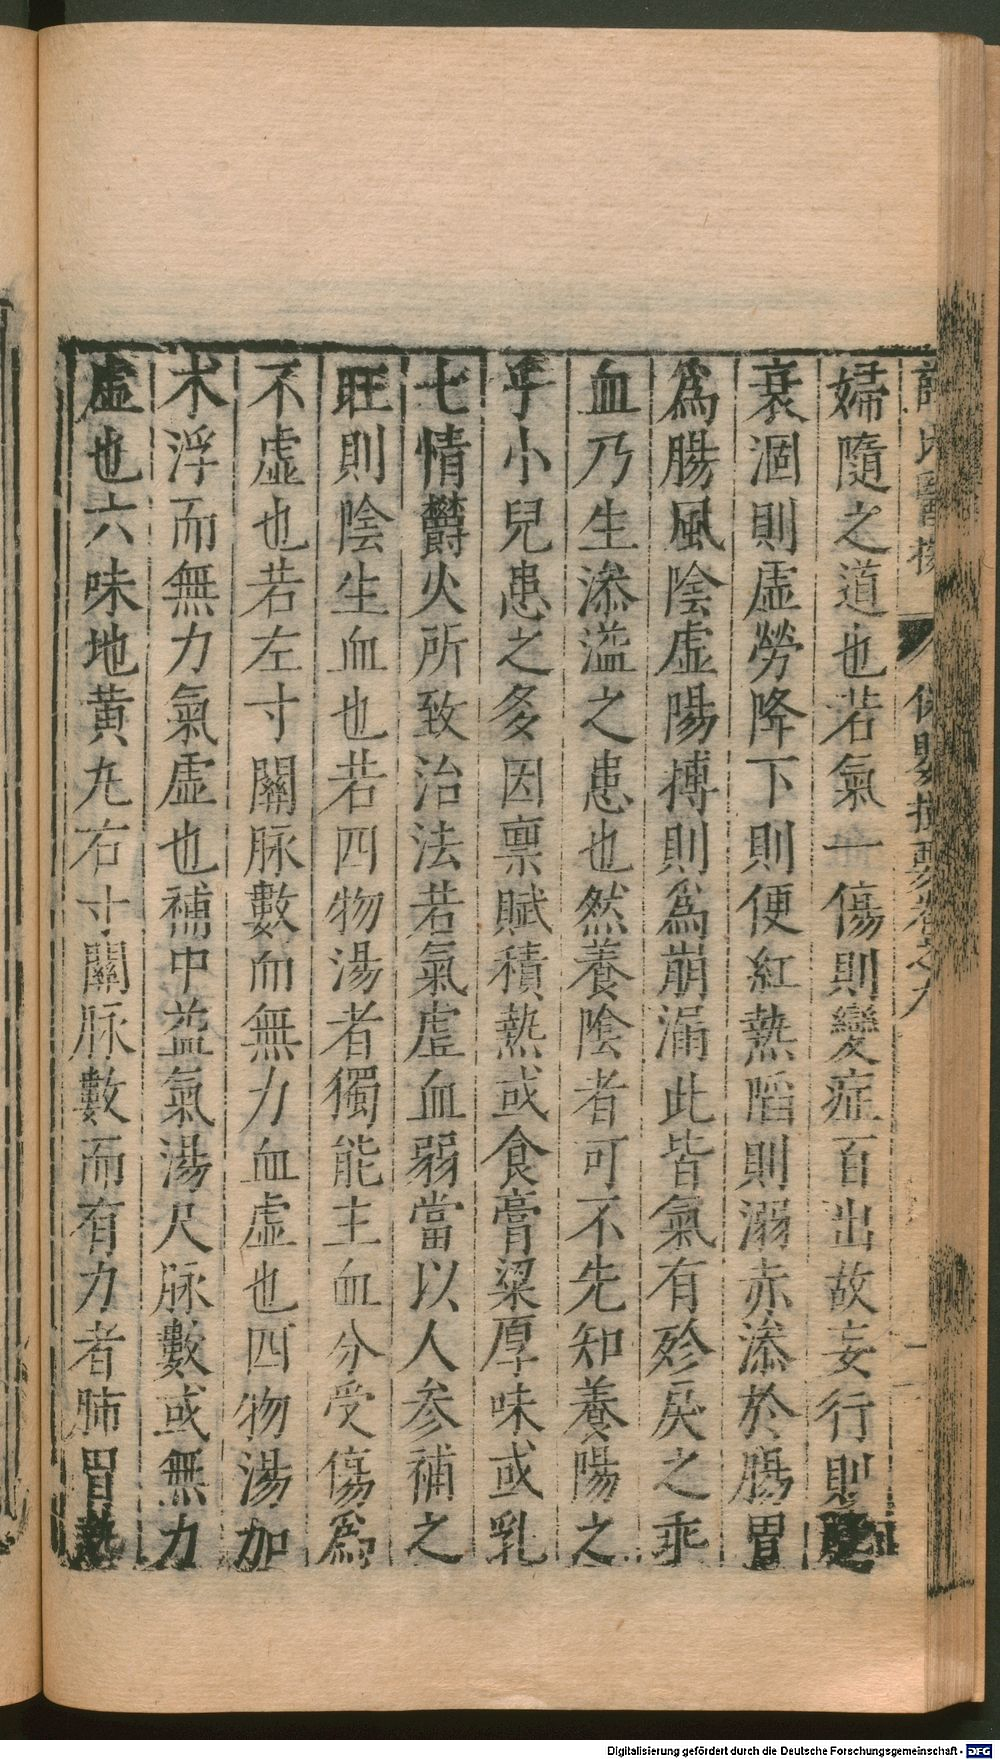 薛氏醫按 保嬰撮要卷之九
婦隨之道也若氣一傷則變症百出故妄行則
衰涸則虛勞降下則便紅熱陷則溺赤滲於腸胃
為腸風陰虛陽搏則為崩漏此皆氣有殄戾之乖
血乃生滲溢之患也然養陰者可不先知養陽之
乎小兒患之多因禀賦積熱或食膏粱厚味或乳
七情鬱火所致治法若氣虛血弱當以人参補之
旺則陰生血也若四物湯者獨能主血分受傷為
不虛也若左寸關脉數而無力血虛也四物湯加
木浮而無力氣虛也補中益氣湯尺脉數或無力
虛也六味地黄丸右寸關脉數而有力者肺胃熱
Digitalisierung gefördert durch die Deutsche Forschungsgemeinschaft - DFG